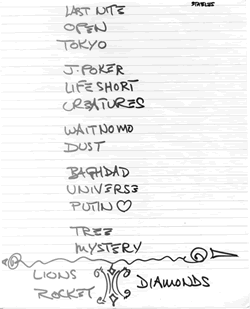 STAPLES
LAST NITE
OPEN
TOKYO
J. POKER
LIFE SHORT
CREATURES
WAIT NO MO
DUST
BAGHDAD
UNIVERSE
PUTIN ♡
TREE
MYSTERY
LIONS
DIAMONDS
ROCKET